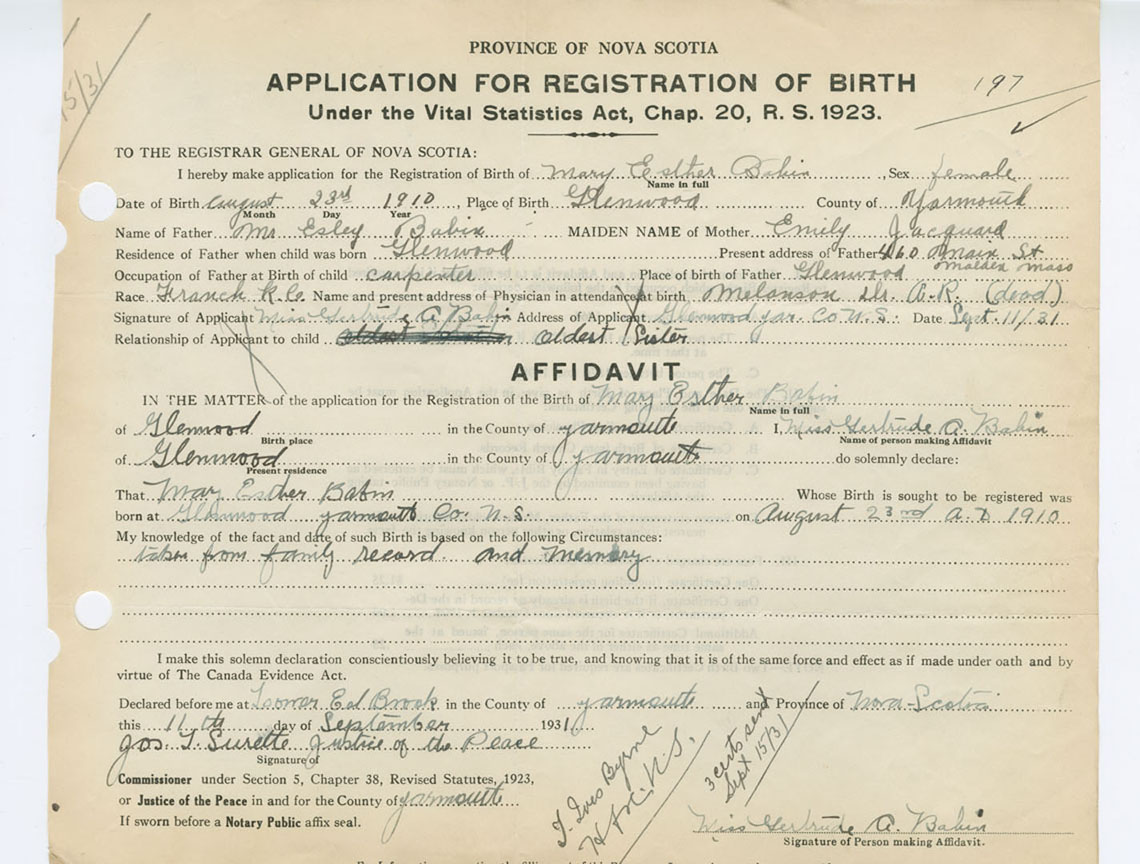 PROVINCE OF NOVA SCOTIA
APPLICATION FOR REGISTRATION OF BIRTH
197
Under the Vital Statistics Act, Chap. 20, R. S. 1923.
15/31
TO THE REGISTRAR GENERAL OF NOVA SCOTIA:
I hereby make application for the Registration of Birth of Mary Esther Babin, Sex female
Name in full
Date of Birth August 23rd 1910, Place of Birth Glenwood County of Yarmouth
Month Day Year
Name of Father Mr Esley Babin MAIDEN NAME of Mother Emily Jacquard
Residence of Father when child was born Glenwood Present address of Father 460 Main St
Malden Mass
Occupation of Father at Birth of child carpenter Place of birth of Father Glenwood
Race Franch R.C. Name and present address of Physician in attendance at birth Melanson Dr. A.R. (dead)
Signature of Applicant Miss Gertrude A Babin Address of Applicant Glenwood Yar. Co N.S. Date Sept. 11/31
Relationship of Applicant to child oldest Sister
AFFIDAVIT
IN THE MATTER of the application for the Registration of the Birth of Mary Esther Babin
Name in full
of Glenwood in the County of Yarmouth I, Miss Gertrude A. Babin
Birth place Name of person making Affidavit
of Glenwood in the County of Yarmouth do solemnly declare:
Present residence
That Mary Esther Babin Whose Birth is sought to be registered was
born at Glenwood Yarmouth Co. N.S. on August 23rd A.D 1910
My knowledge of the fact and date of such Birth is based on the following Circumstances:
taken from family record and memory
I make this solemn declaration conscientiously believing it to be true, and knowing that it is of the same force and effect as if made under oath and by
virtue of The Canada Evidence Act.
Declared before me at Eel Brook in the County of Yarmouth and Province of Nova-Scotia
this 11th day of September 1931
Jos. T. Surette Justice of the Peace
Signature of
Commissioner under Section 5, Chapter 38, Revised Statutes, 1923,
or Justice of the Peace in and for the County of Yarmouth
If sworn before a Notary Public affix seal.
Byrne
3 certs sent
Sept 15/31
Miss Gertrude A. Babin
Signature of Person making Affidavit.